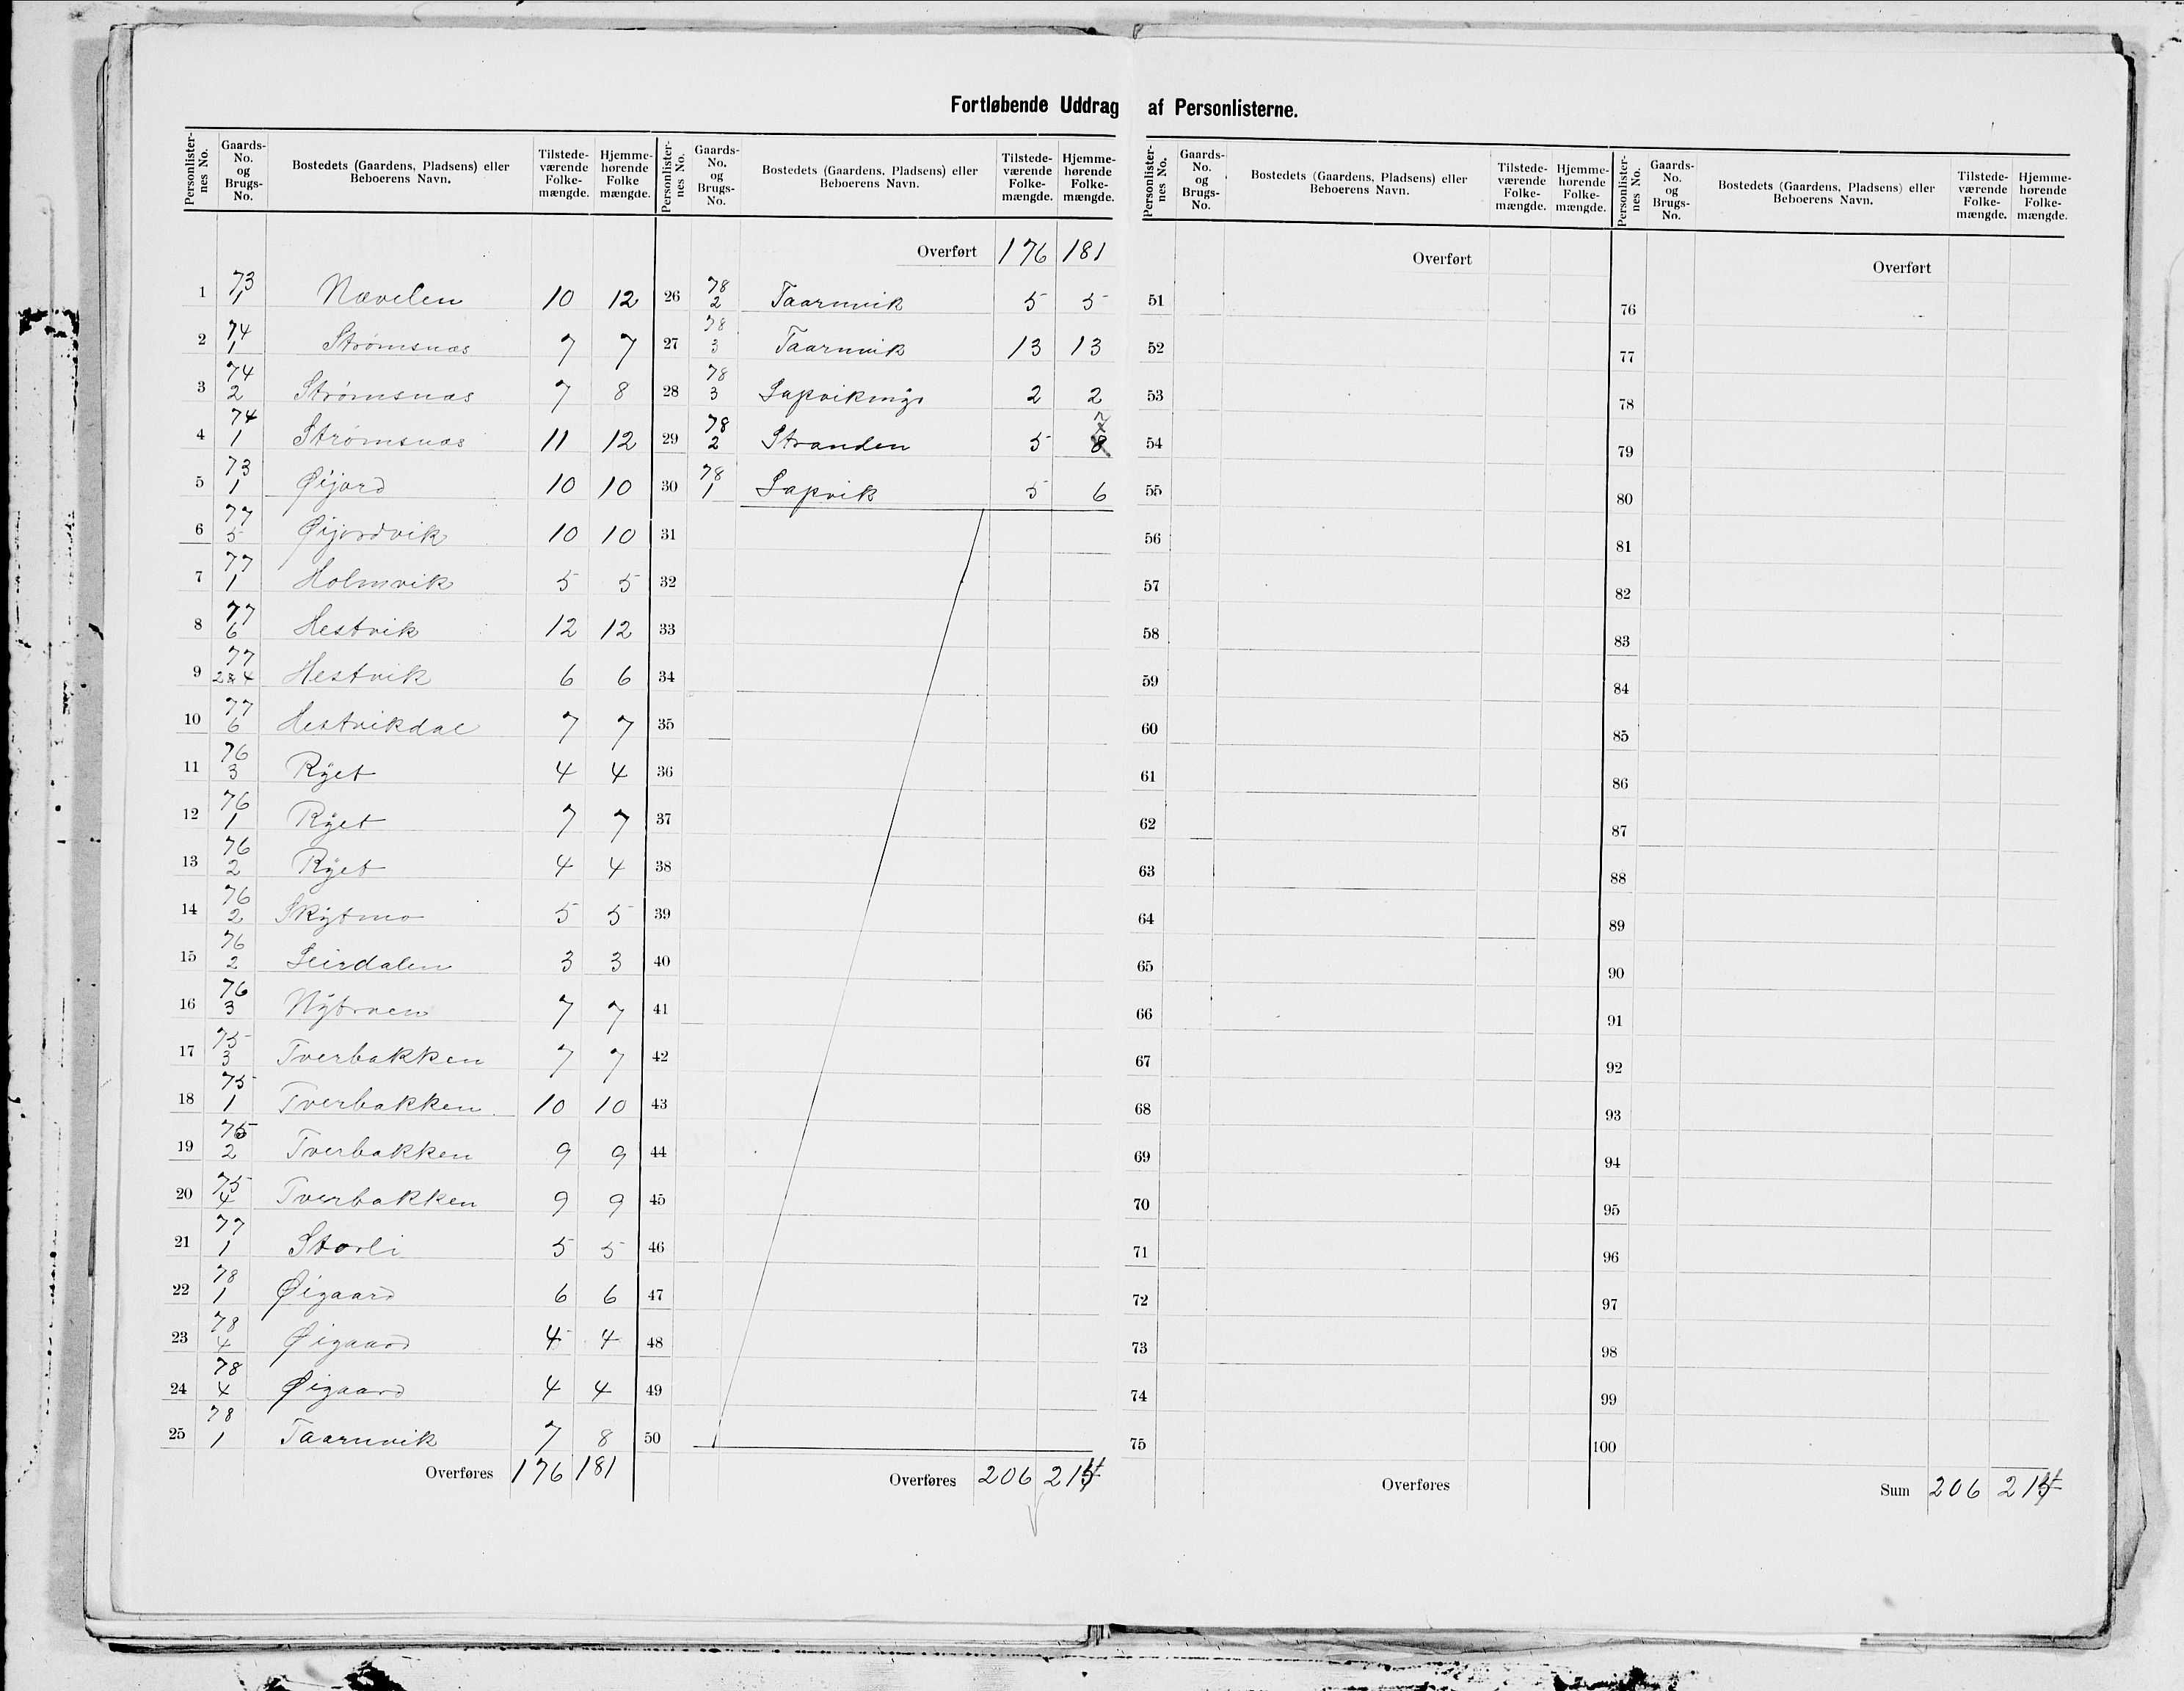 Fortløbende Uddrag af Personlisterne.
Personlister-nes No. Gaards-No. og Brugs-No. Bostedets (Gaardens, Pladsens) eller Beboerens Navn. Tilstede-værende Folke-mængde. Hjemme-hørende Folke mængde.
1 73 1 Nævelen 10 12
2 74 1 Strømsnæs 7 7
3 74 2 Strømsnæs 7 8
4 74 1 Strømsnæs 11 12
5 73 1 Øijord 10 10
6 77 5 Øijordvik 10 10
7 77 1 Holmvik 5 5
8 77 6 Hestvik 12 12
9 77 2 & 4 Hestvik 6 6
10 77 6 Hestvikdal 7 7
11 76 3 Ryet 4 4
12 76 1 Ryet 7 7
13 76 2 Ryet 4 4
14 76 2 Skytmo 5 5
15 76 2 Leirdalen 3 3
16 76 3 Nytrøen 7 7
17 75 3 Tverbakken 7 7
18 75 1 Tverbakken 10 10
19 75 2 Tverbakken 9 9
20 75 4 Tverbakken 9 9
21 77 1 Storli 5 5
22 78 1 Øigaard 6 6
23 78 4 Øigaard 4 4
24 78 4 Øigaard 4 4
25 78 1 Taarnvik 7 8
Overføres 176 181
Personlister-nes No. Gaards-No. og Brugs-No. Bostedets (Gaardens, Pladsens) eller Beboerens Navn. Tilstede-værende Folke-mængde. Hjemme-hørende Folke-mængde.
Overført 176 181
26 78 2 Taarnvik 5 5
27 78 3 Taarnvik 13 13
28 78 3 Lapvikmyr 2 2
29 78 2 Stranden 5 7
30 78 1 Lapvik 5 6
31
32
33
34
35
36
37
38
39
40
41
42
43
44
45
46
47
48
49
50
Overføres 206 214
Personlister-nes No. Gaards-No. og Brugs-No. Bostedets (Gaardens, Pladsens) eller Beboerens Navn. Tilstede-værende Folke-mængde. Hjemme-hørende Folke-mængde.
Overført
51
52
53
54
55
56
57
58
59
60
61
62
63
64
65
66
67
68
69
70
71
72
73
74
75
Overføres
Personlister-nes No. Gaards-No. og Brugs-No. Bostedets (Gaardens, Pladsens) eller Beboerens Navn. Tilstede-værende Folke-mængde. Hjemme-hørende Folke-mængde.
Overført
76
77
78
79
80
81
82
83
84
85
86
87
88
89
90
91
92
93
94
95
96
97
98
99
100
Sum 206 214